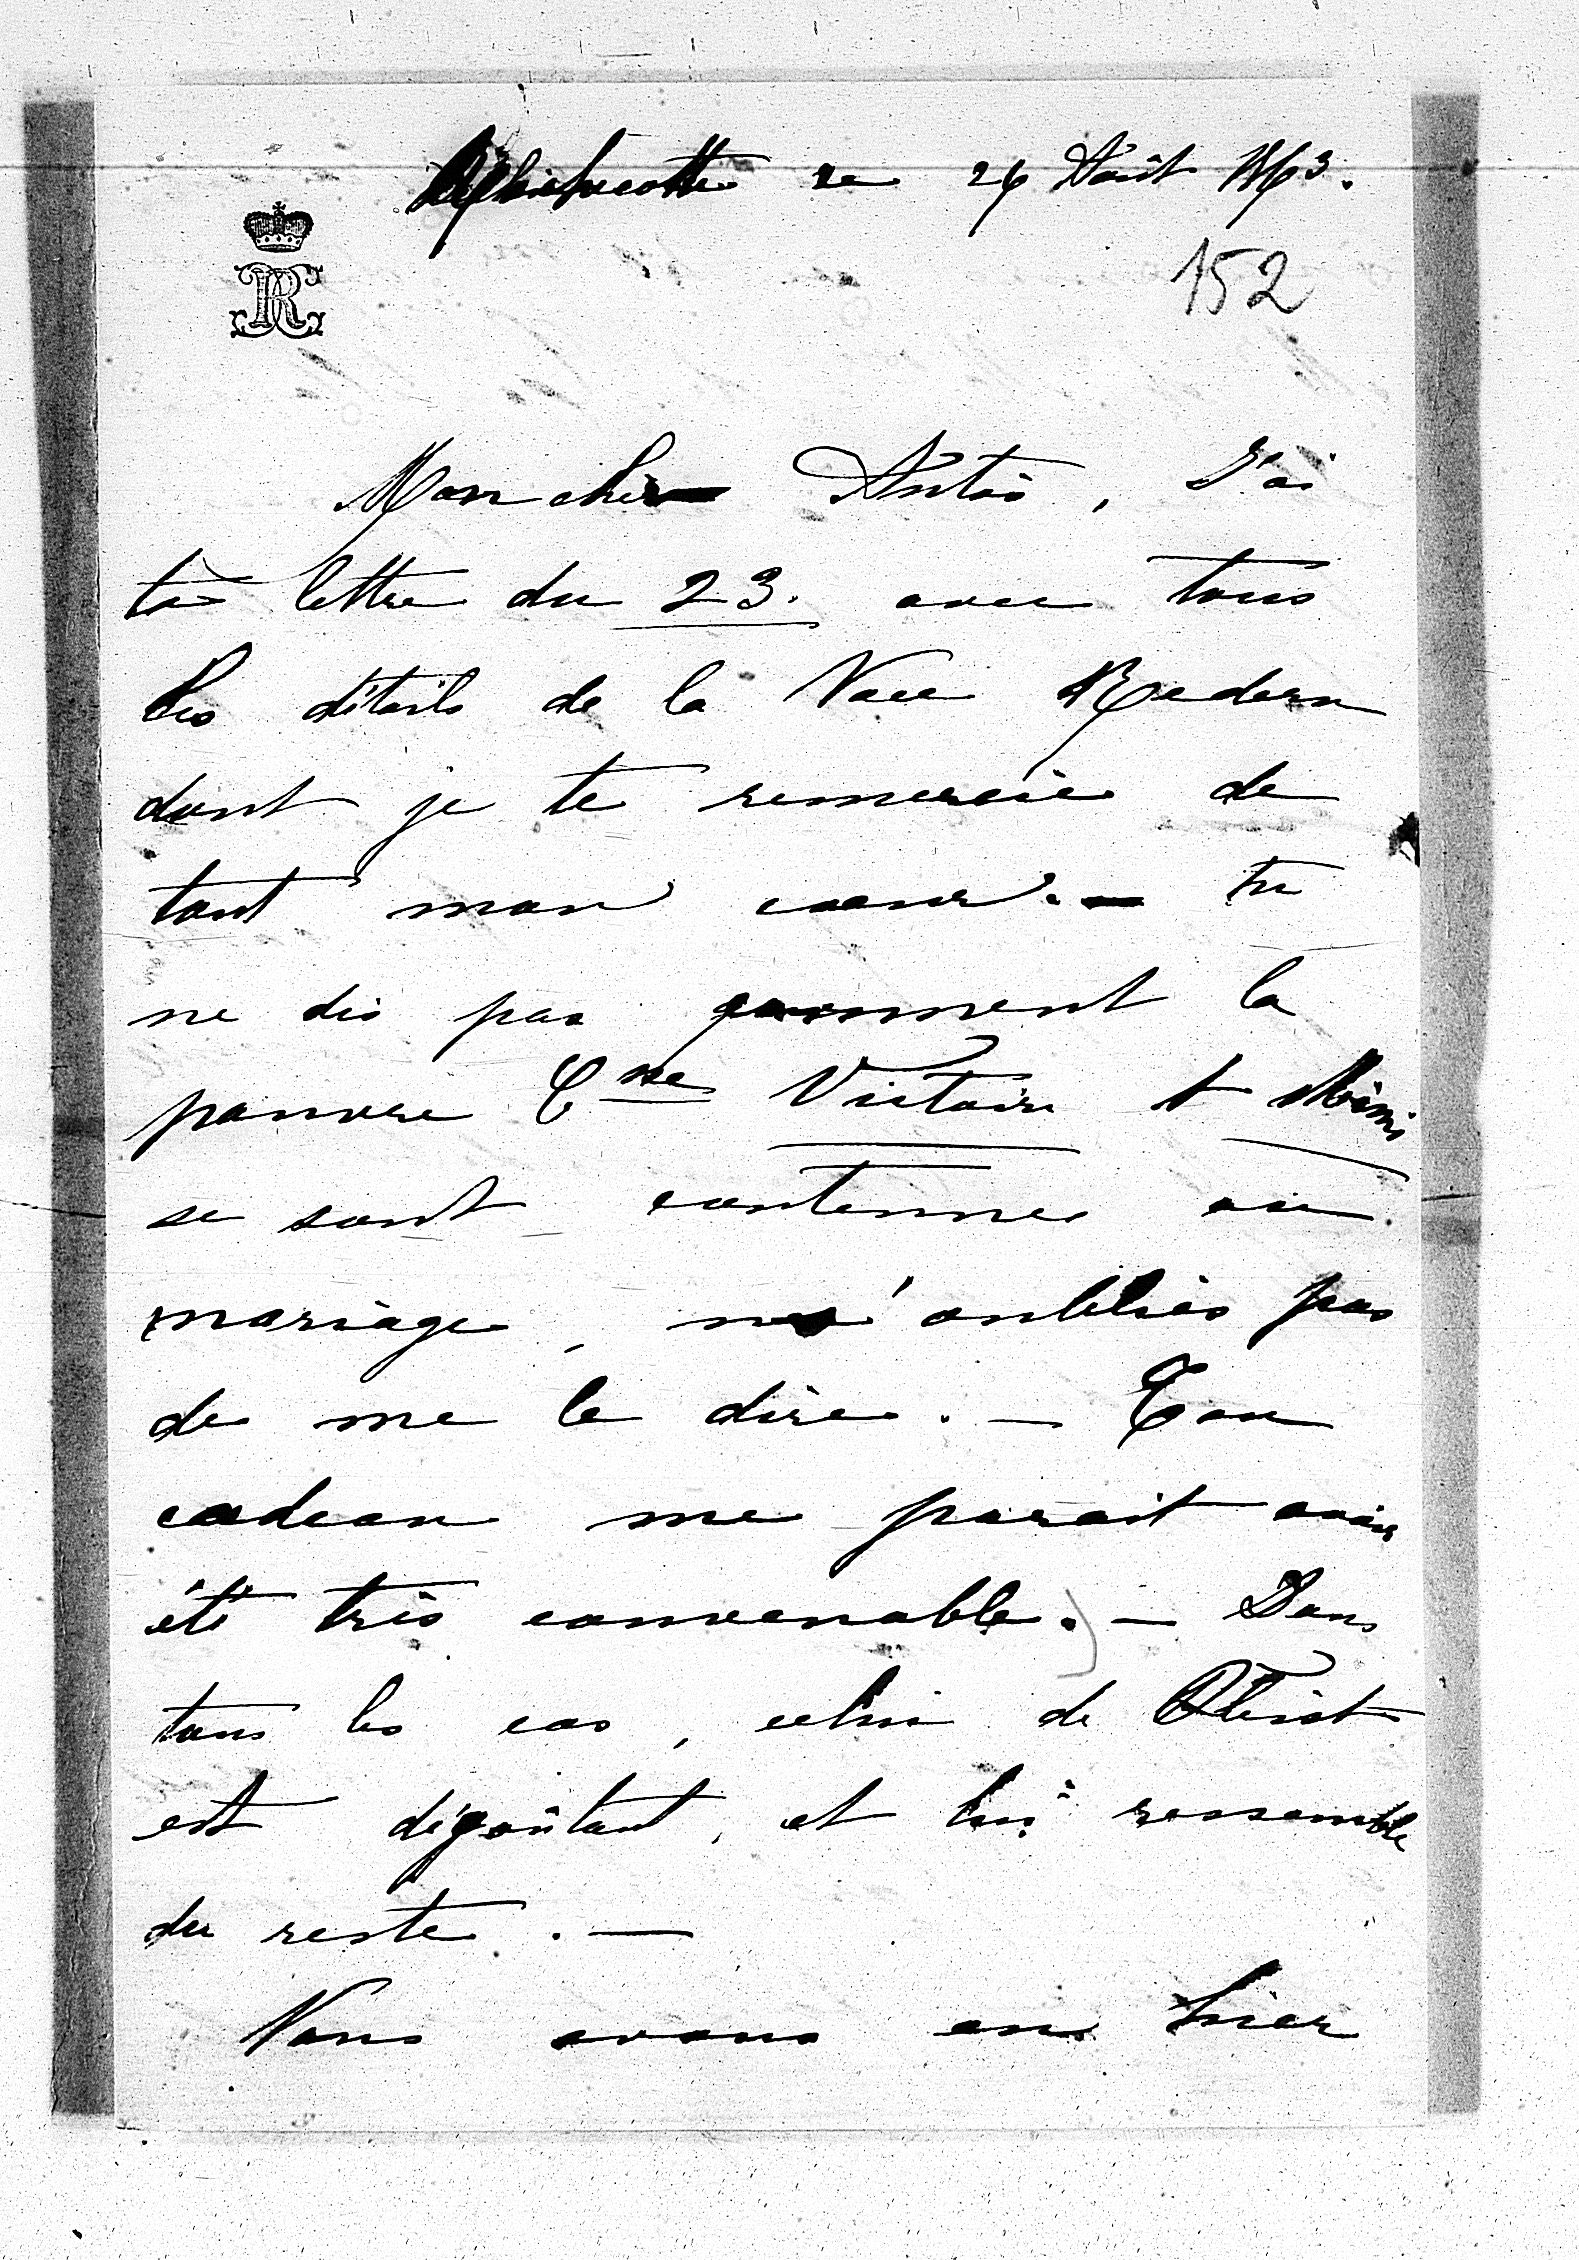 ce 26 Août 1863.
152
Mon cher Antoi, J'ai
ta lettre du 23. avec tous
les détails de la Noce Redern
dont je te remercie de
tout mon coeur. — tu
ne dis pas comment la
pauvre Csse Victoire & Mimi
se sont contenues au
mariage, n'oublies pas
de me le dire. — Ton
cadeau me parait avoir
été très convenable. — Dans
tous les cas, celui de
est dégoûtant, et lui ressemble
du reste. —
Nous avons eu hier